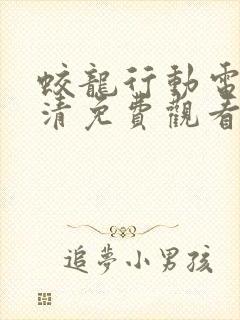 蛟龍行動電
清免費觀看
追夢小男孩